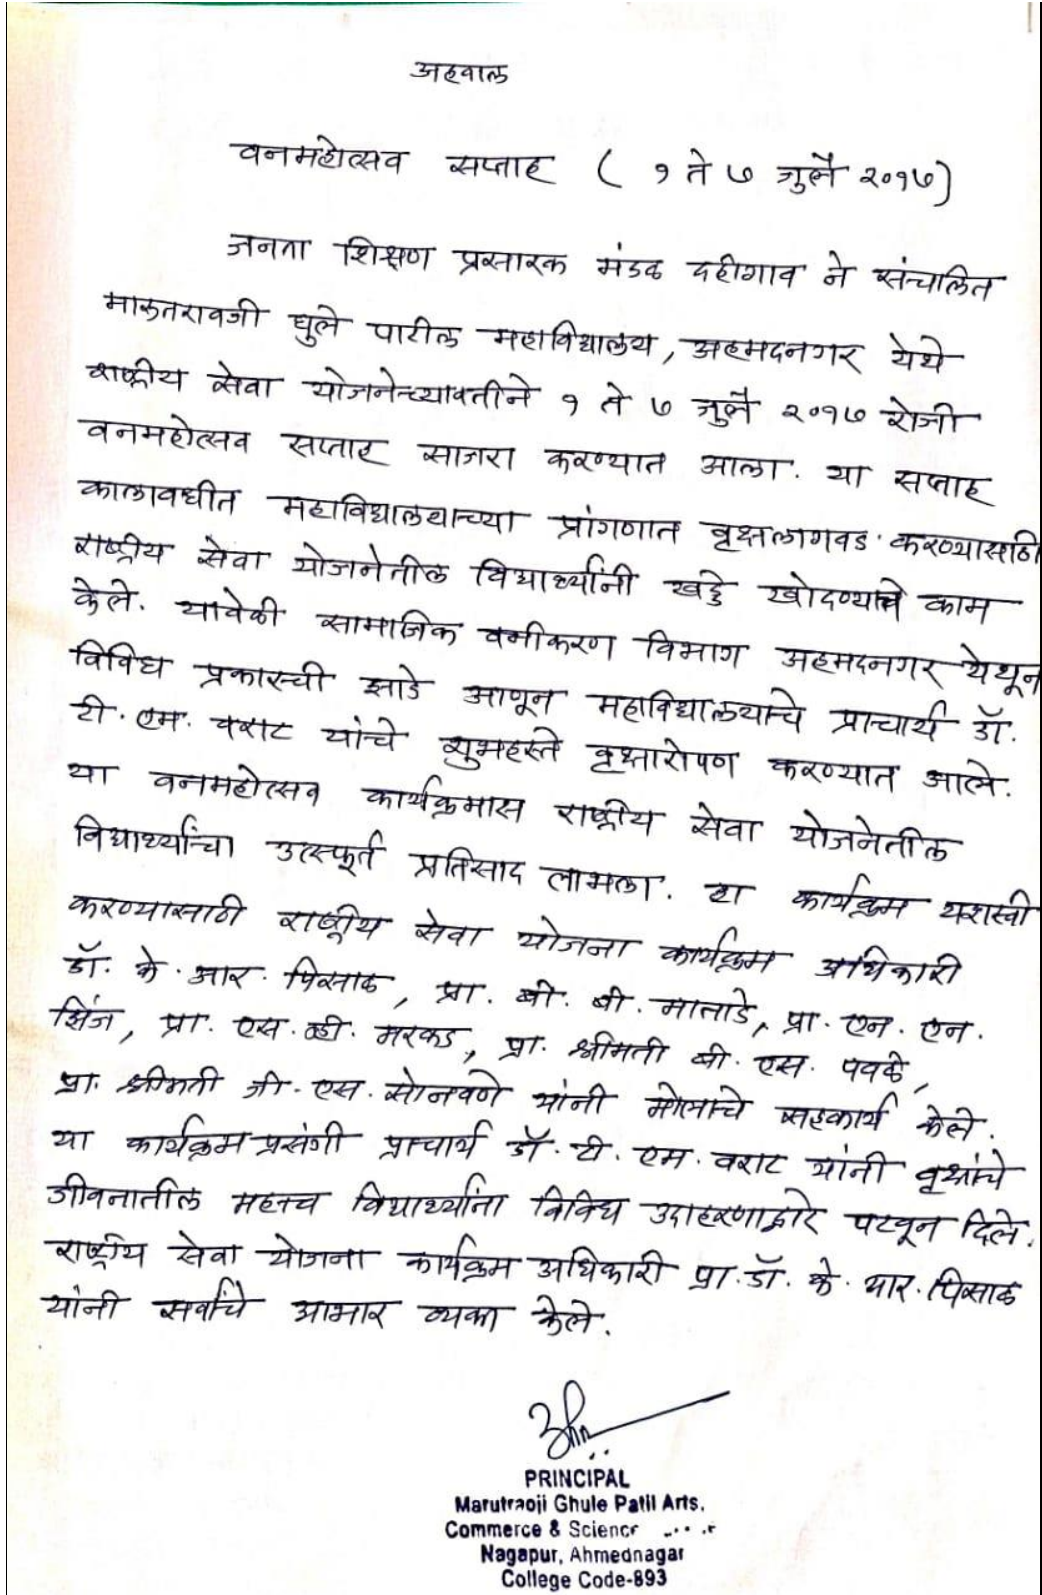 अहवाल
वनमहोत्सव सप्ताह ( १ ते ७ जुलै २०१७)
जनता शिक्षण प्रसारक मंडळ दहीगाव ने संचालित
मारुतरावजी घुले पाटील महाविद्यालय, अहमदनगर येथे
राष्ट्रीय सेवा योजनेच्यावतीने १ ते ७ जुलै २०१७ रोजी
वनमहोत्सव सप्ताह साजरा करण्यात आला. या सप्ताह
कालावधीत महाविद्यालयाच्या प्रांगणात वृक्षलागवड करण्यासाठी
राष्ट्रीय सेवा योजनेतील विद्यार्थ्यांनी खड्डे खोदण्याचे काम
केले. यावेळी सामाजिक वनीकरण विभाग अहमदनगर येथून
विविध प्रकारची झाडे आणून महाविद्यालयाचे प्राचार्य डॉ.
टी. एम. वराट यांचे शुभहस्ते वृक्षारोपण करण्यात आले.
या वनमहोत्सव कार्यक्रमास राष्ट्रीय सेवा योजनेतील
विद्यार्थ्यांचा उत्स्फूर्त प्रतिसाद लाभला. हा कार्यक्रम यशस्वी
करण्यासाठी राष्ट्रीय सेवा योजना कार्यक्रम अधिकारी
डॉ. के. आर. पिसाळ, प्रा. बी. बी. माताडे, प्रा. एन. एन.
झिंज, प्रा. एस. व्ही. मरकड, प्रा. श्रीमती बी. एस. पवळे,
प्रा. श्रीमती जी. एस. सोनवणे यांनी मोलाचे सहकार्य केले.
या कार्यक्रम प्रसंगी प्राचार्य डॉ. टी. एम. वराट यांनी वृक्षांचे
जीवनातील महत्त्व विद्यार्थ्यांना विविध उदाहरणाद्वारे पटवून दिले.
राष्ट्रीय सेवा योजना कार्यक्रम अधिकारी प्रा. डॉ. के. आर. पिसाळ
यांनी सर्वांचे आभार व्यक्त केले.
PRINCIPAL
Marutraoji Ghule Patil Arts,
Commerce & Science
Nagapur, Ahmednagar
College Code-893